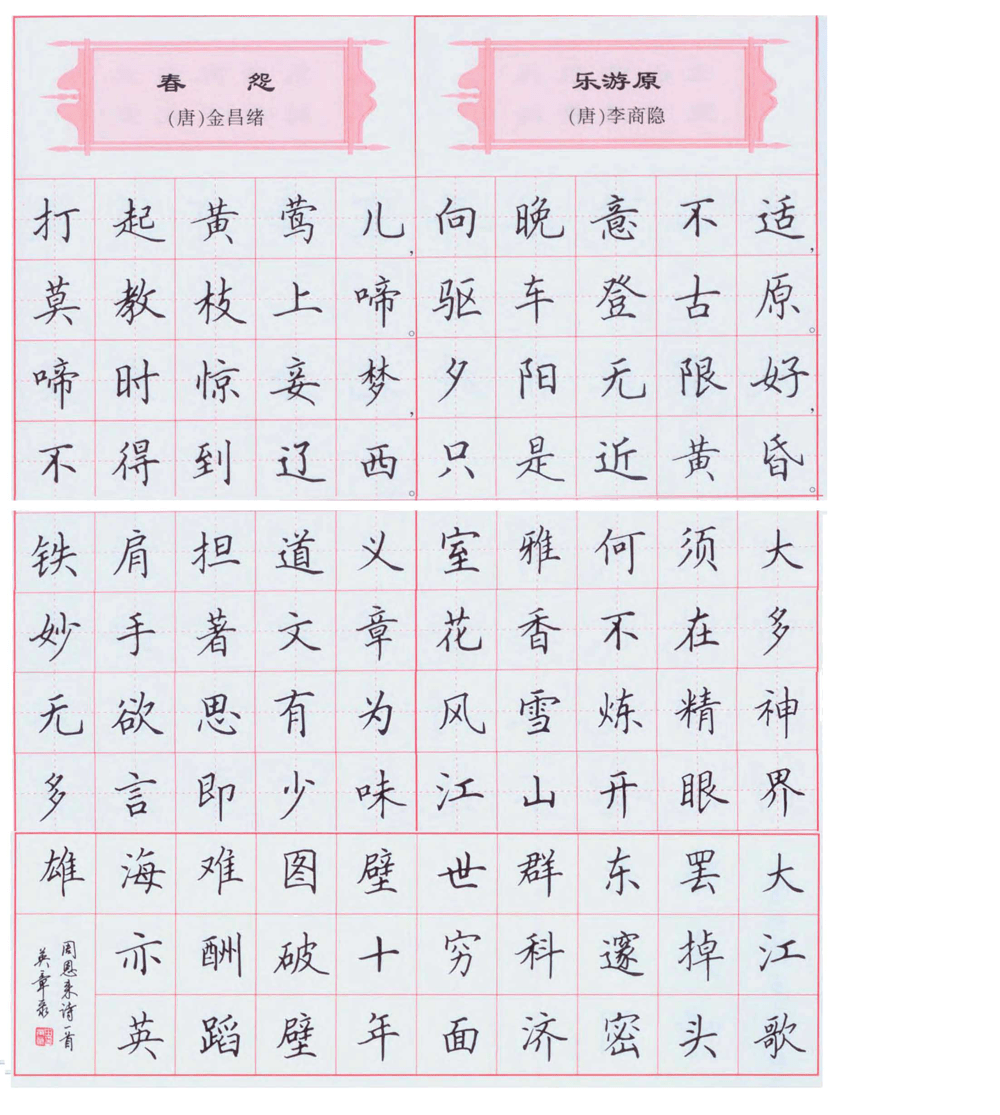 春 怨
(唐)金昌绪
打起黄莺儿，
莫教枝上啼。
啼时惊妾梦，
不得到辽西。
乐游原
(唐)李商隐
向晚意不适，
驱车登古原。
夕阳无限好，
只是近黄昏。
铁肩担道义
妙手著文章
无欲思有为
多言即少味
室雅何须大
花香不在多
风雪炼精神
江山开眼界
大江歌
罢掉头
东邃密
群科济
世穷面
壁十年
图破壁
难酬蹈
海亦英
雄
周恩来诗一首
英章录